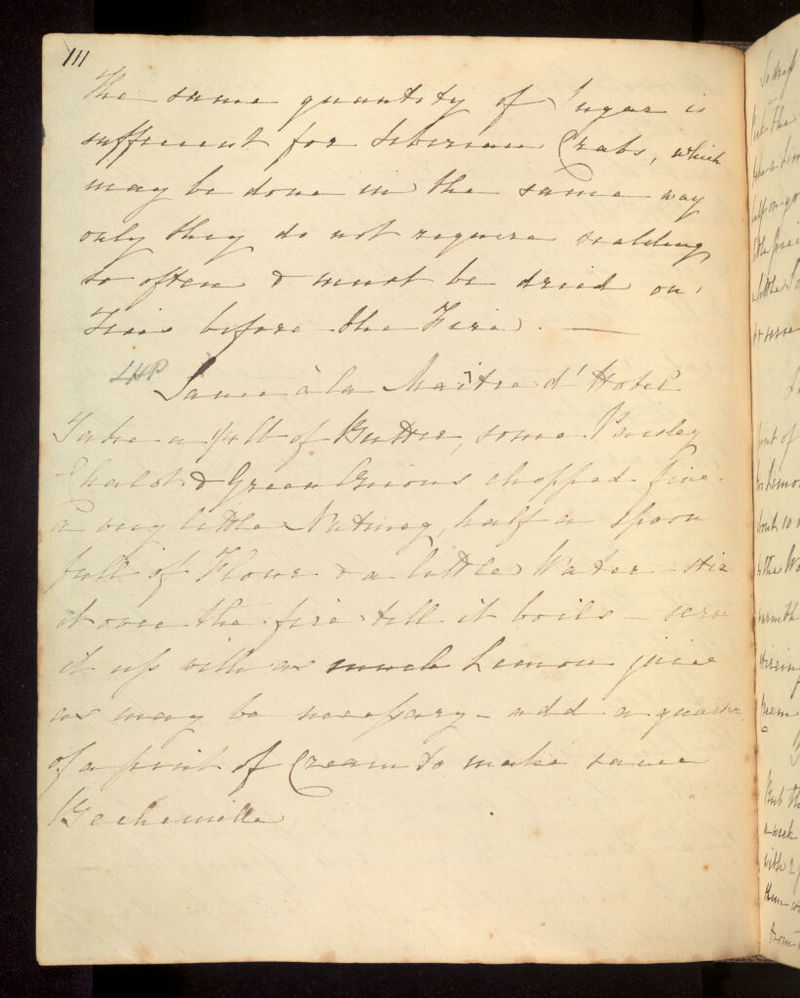 111
The same quantity of Sugar is
sufficient for Siberian Crabs, which
may be done in the same way
only they do not require scalding
so often & must be dried on
Tins before the Fire. —
LHP
Sauce à la Maître d'Hotel
Take a 1/4 lb of Butter, some Parsley
Shalot & Green Onions chopped fine
a very little Nutmeg, half a spoon
full of Flour & a little Water – stir
it over the fire till it boils – serve
it up with as much Lemon juice
as may be necessary – add a quarter
of a pint of Cream to make sauce
Bechemelle